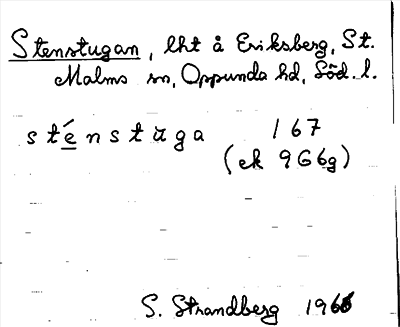 Stenstugan, lht å Eriksberg, St.
Malms sn, Oppunda hd, Söd. l.
sténstuga 167
(ek 9G6g)
S. Strandberg 1966